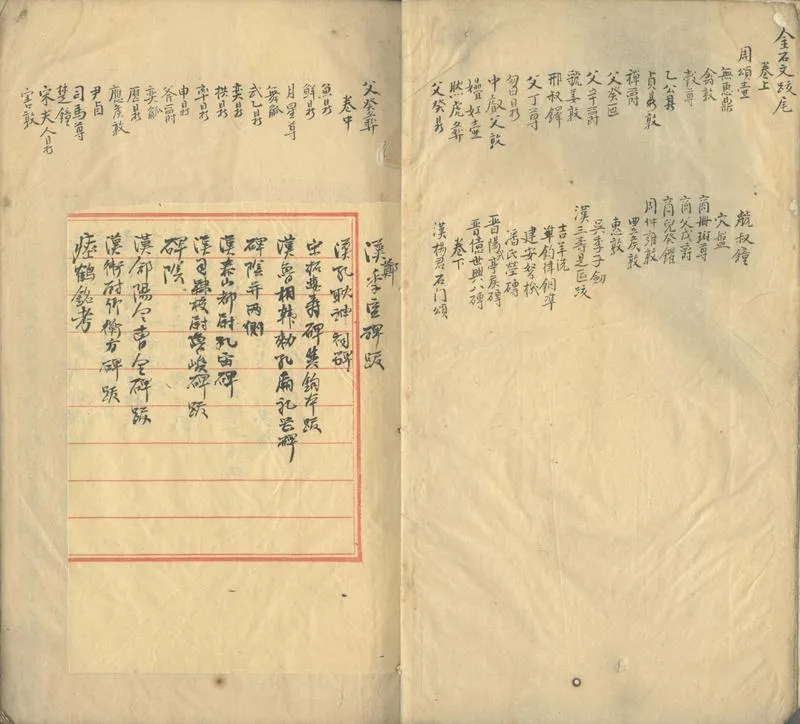 金石文跋尾
卷上
周頌壺
無惠鼎
禽敦
敔敦
乙公鼎
禪爵
父癸匜
父辛爵
虢姜敦
邢叔鐸
父丁尊
曶鼎
中叡父敦
嬗妊壺
然虎彝
父癸鼎
虢叔鐘
宂盤
商冊珊尊
商父戊爵
商兒癸鑵
周仲雍敦
惠敦
吳季子劍
漢三壽是區跋
吉羊洗
律銅準
建安弩機
潘氏塋磚
晉陽亭矦磚
晉僖世興八磚
卷下
漢楊君石門頌
父癸彝
卷中
魚鼎
鮮鼎
月星尊
舞觚
武乙鼎
奕鼎
拱鼎
享鼎
申鼎
斧爵
奕觚
歷鼎
應矦敦
尹卣
司馬尊
楚鐘
宋夫人鼎
害敦
漢鄭季宣碑跋
漢孔耽神祠碑
宋拓婁壽碑雙鉤本跋
漢魯相韓勑孔廟禮器碑
碑陰并兩側
漢泰山都尉孔宙碑
漢司隸校尉魯峻碑跋
碑陰
漢郃陽令曹全碑跋
漢衛尉卿衡方碑跋
瘞鶴銘考